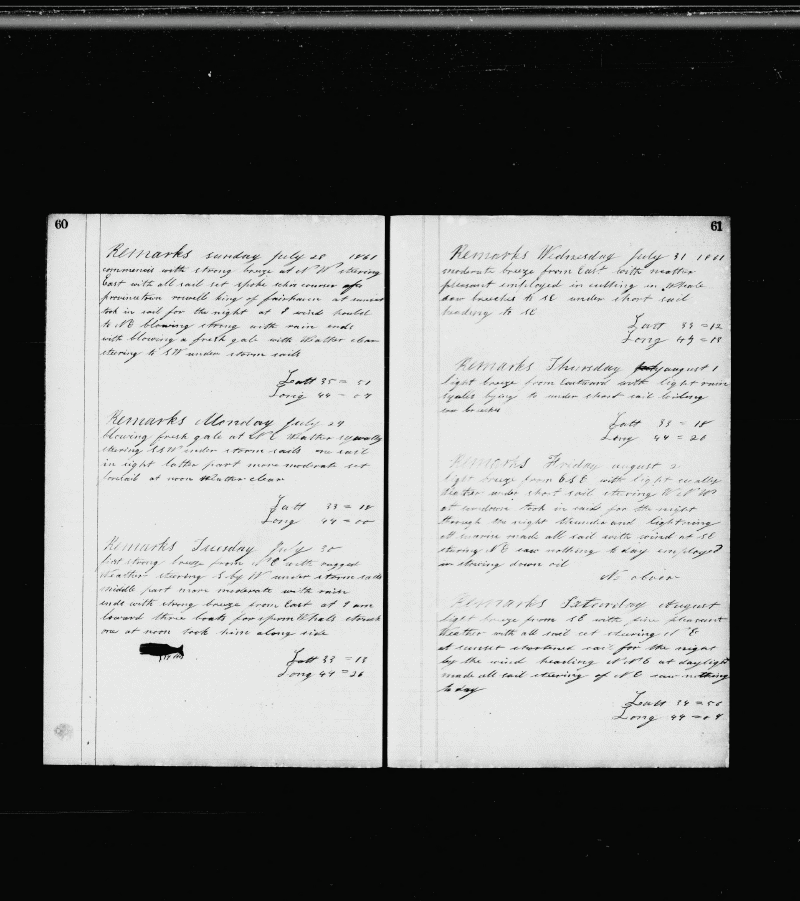 60
Remarks Sunday July 28 1861
commences with strong breeze at N W steering
East with all sail set spoke schr
provincetown rowell king of fairhaven at sunset
took in sail for the night at 8 wind hauled
to NE blowing strong with rain ends
with blowing a fresh gale with Weather clear
steering to SW under storm sails
Latt 35 = 51
Long 44 = 07
Remarks Monday July 29
blowing fresh gale at N E Weather squally
steering S S W under storm sails one sail
in sight latter part more moderate set
foresail at noon Weather clear
Latt 33 = 18
Long 44 = 00
Remarks Tuesday July 30
first strong breeze from N E with rugged
Weather steering S by W under storm sails
middle part more moderate with rain
ends with strong breeze from East at 9 am
lowered three boats for sperm Whale struck
one at noon took him along side
Latt 33 = 13
Long 44 = 26
61
Remarks Wednesday July 31 1861
moderate breeze from East with weather
pleasant employed in cutting in Whale
saw breaches to SE under short sail
heading to SE
Latt 33 = 12
Long 44 = 18
Remarks Thursday august 1
light breeze from Eastward with light rain
squalls laying to under short sail
saw breaches
Latt 33 = 18
Long 44 = 20
Remarks Friday august 2
light breeze from E S E with light squally
Weather under short sail steering W N W
at sundown took in sail for the night
through the night thunder and lightning
at sunrise made all sail with wind at SE
steering NE saw nothing to day employed
in stowing down oil
No obser
Remarks Saturday August
light breeze from SE with fine pleasant
Weather with all sail set steering N E
at sunset shortened sail for the night
by the wind heading N N E at daylight
made all sail steering of NE saw nothing
to day
Latt 34 = 56
Long 44 = 07